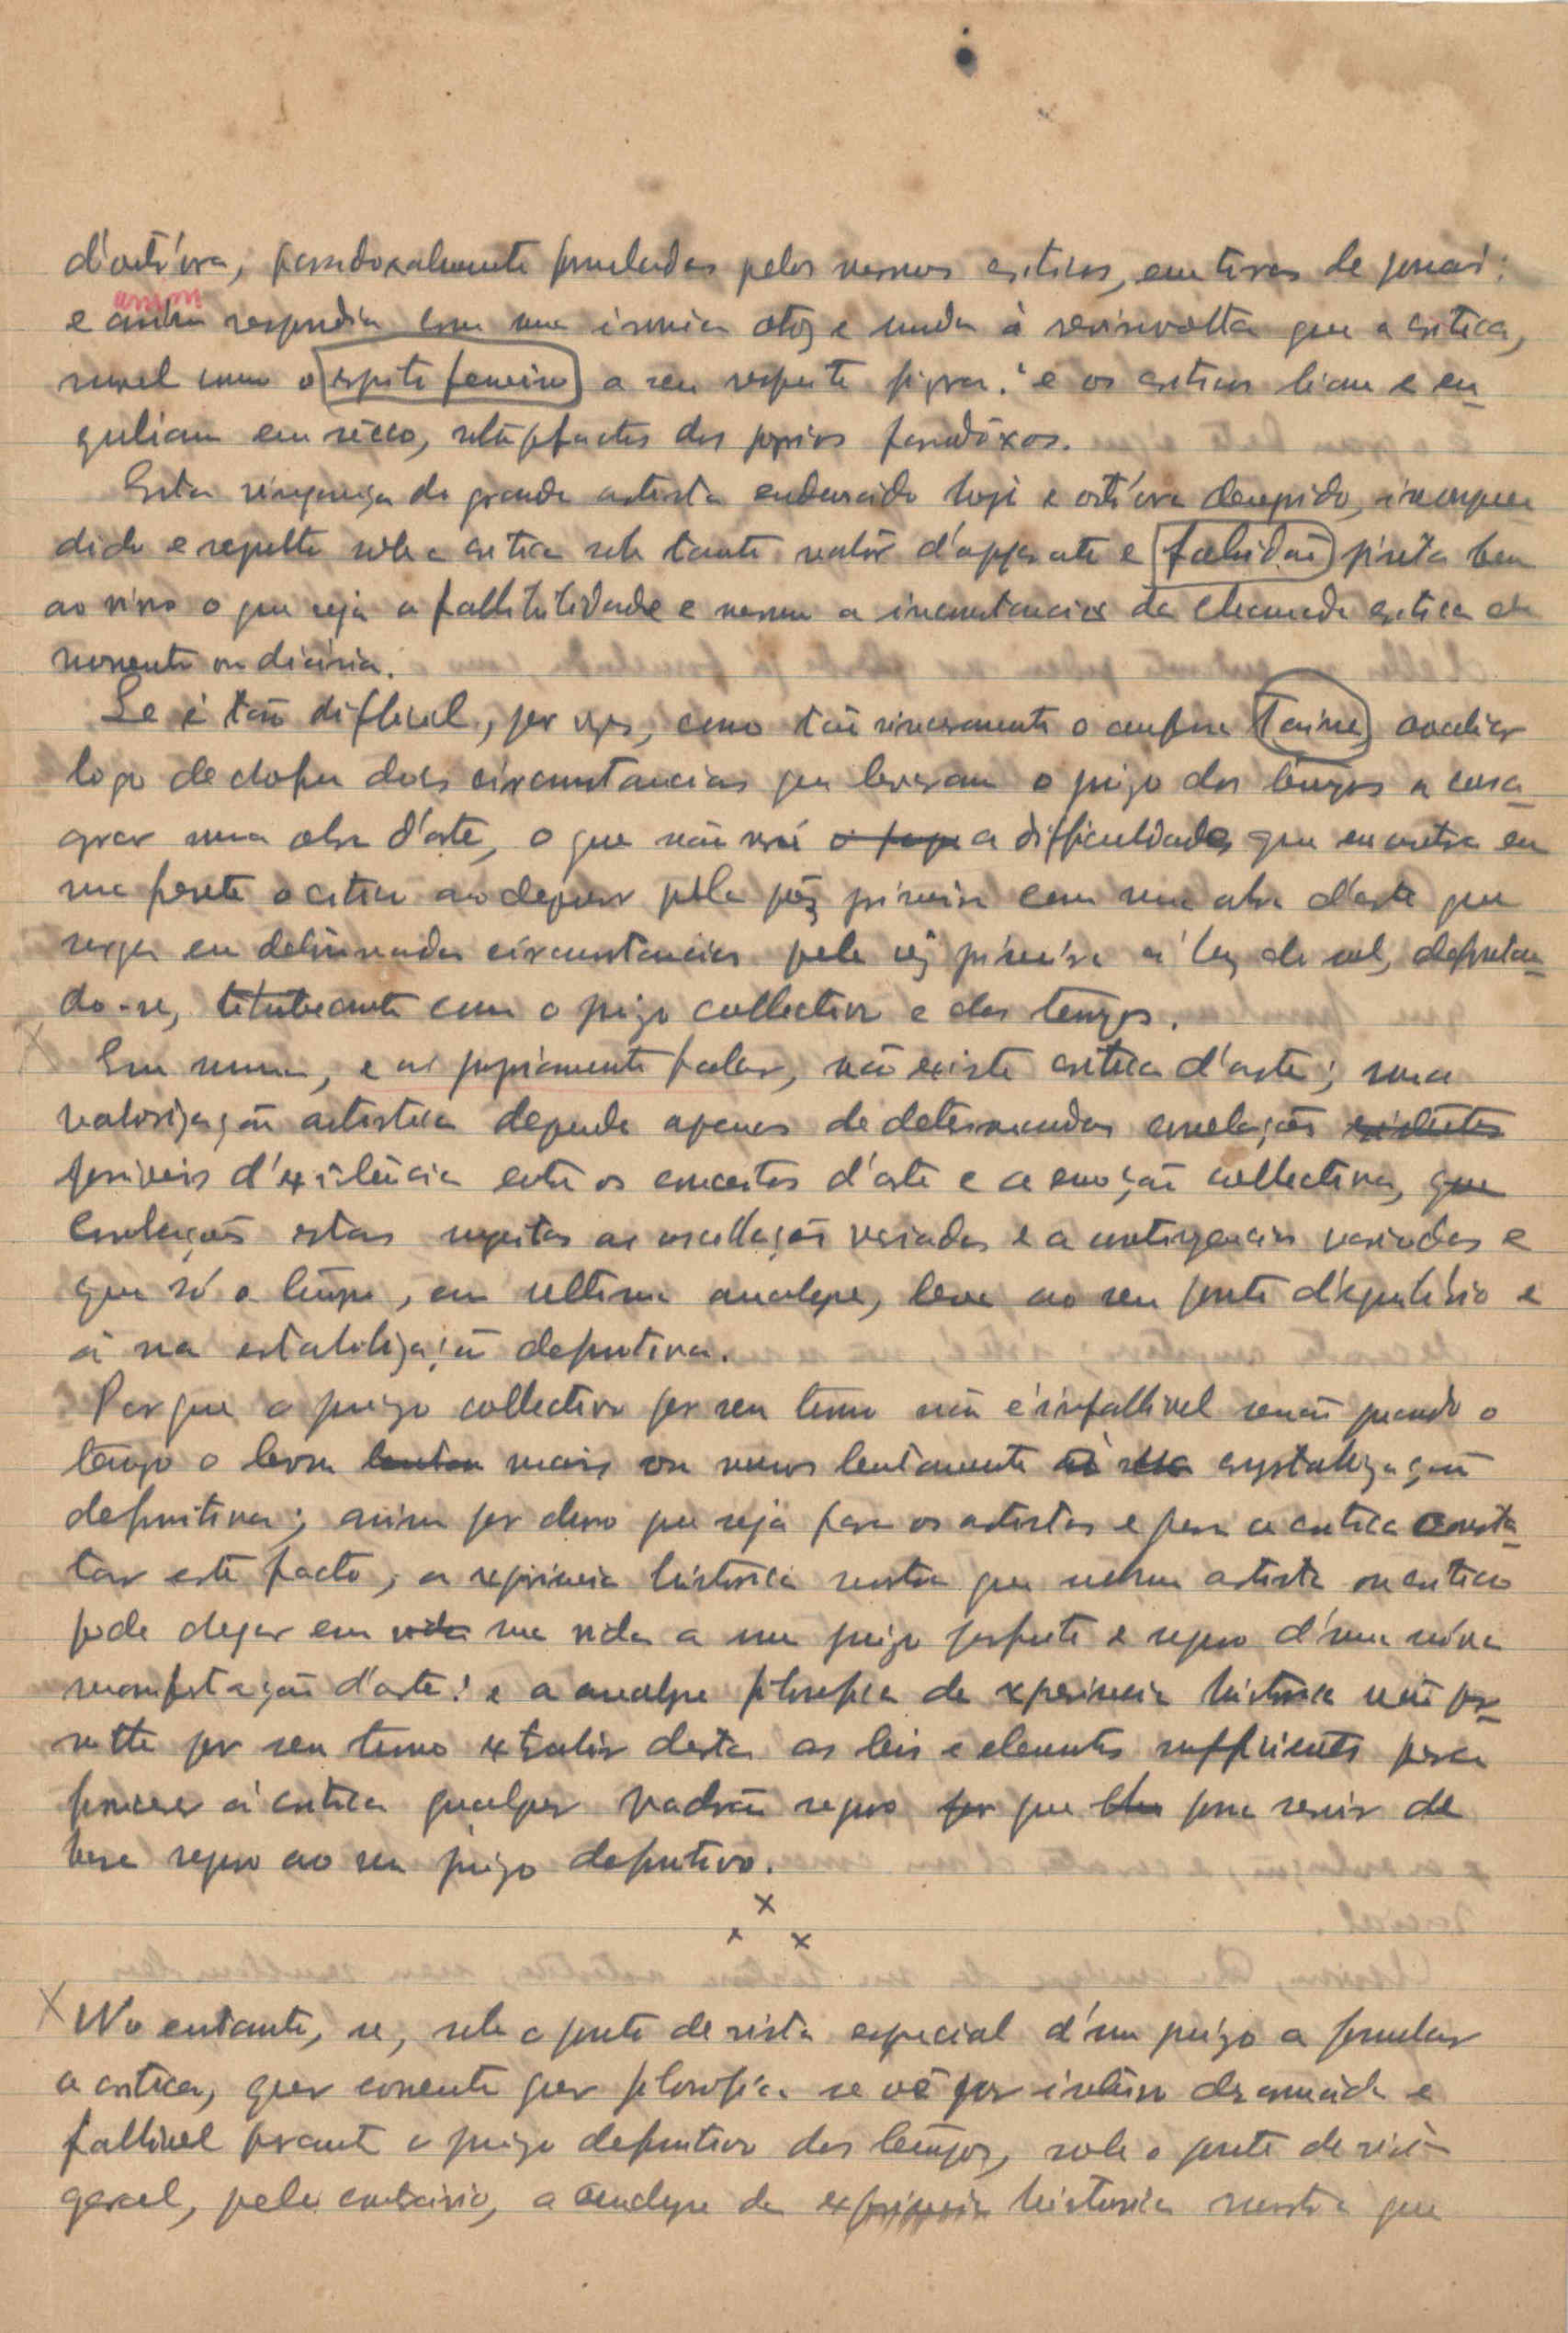 d'outr'ora, paradoxalmente formuladas pelos mesmos criticos, em tiras de jornal:
e assim assim respondia com uma ironia atroz e muda á reviravolta que a critica,
movel como o espirito femenino a seu respeito fizera: e os criticos liam e en-
guliam em sêcco, estupefactos dos proprios paradôxos.
Esta vingança do grande artista endeusado hoje e outr'ora incompreen
dido e sobre a critica sob tanto valôr d'apparato e pinta bem
ao vivo o que seja a fallibilidade e mesmo a inconstancia da chamada critica de
momento ou diária.
Se é tão difficil, por vezes, como tão sinceramente o confessa Taine avaliar
logo das circumstancias que levaram o juizo dos tempos a consa-
grar uma obra d'arte, o que não será a difficuldade que encontra em
sua frente o critico ao depar pela vez primeira com uma obra d'arte que
surge em determinadas circumstancias pela vez primeira á luz do sol, defrontan-
do-se, titubeante com o juizo collectivo e dos tempos.
Em summa, e a propriamente falar, não existe critica d'arte; uma
valorização artistica depende apenas de determinadas correlações existentes
possiveis d'existência entre os conceitos d'arte e a emoção collectiva, que
correlações estas sujeitas a oscillações variadas e a contingencias variadas e
que só o tempo, em ultima analyse, leva ao seu ponto d'equilibrio e
á sua estabilização definitiva.
Porque o juizo collectivo por seu turno não é infallivel senão quando o
tempo o levou mais ou menos lentamente á sua crystalização
definitiva; assim por duro que seja para os artistas e para a critica consta-
tar este facto, a experiencia historica mostra que nenhum artista ou critico
pode chegar em vida sua vida a um juizo perfeito e seguro d'uma nóva
manifestação d'arte: e a analyse filosofica da experiencia historica não per-
mitte por seu turno extrahir desta as leis e elementos sufficientes para
fornecer á critica qualquer padrão seguro por que possa servir de
base segura ao seu juizo definitivo.
x
x x
X No entanto, se, sob o ponto de vista especial d'um juizo a formular
a critica, quer corrente quer filosofica se vê por inteiro desarmada e
fallivel perante o juizo definitivo dos tempos, sob o ponto de vista
geral, pelo contrário, a analyse da experiencia historica mostra que